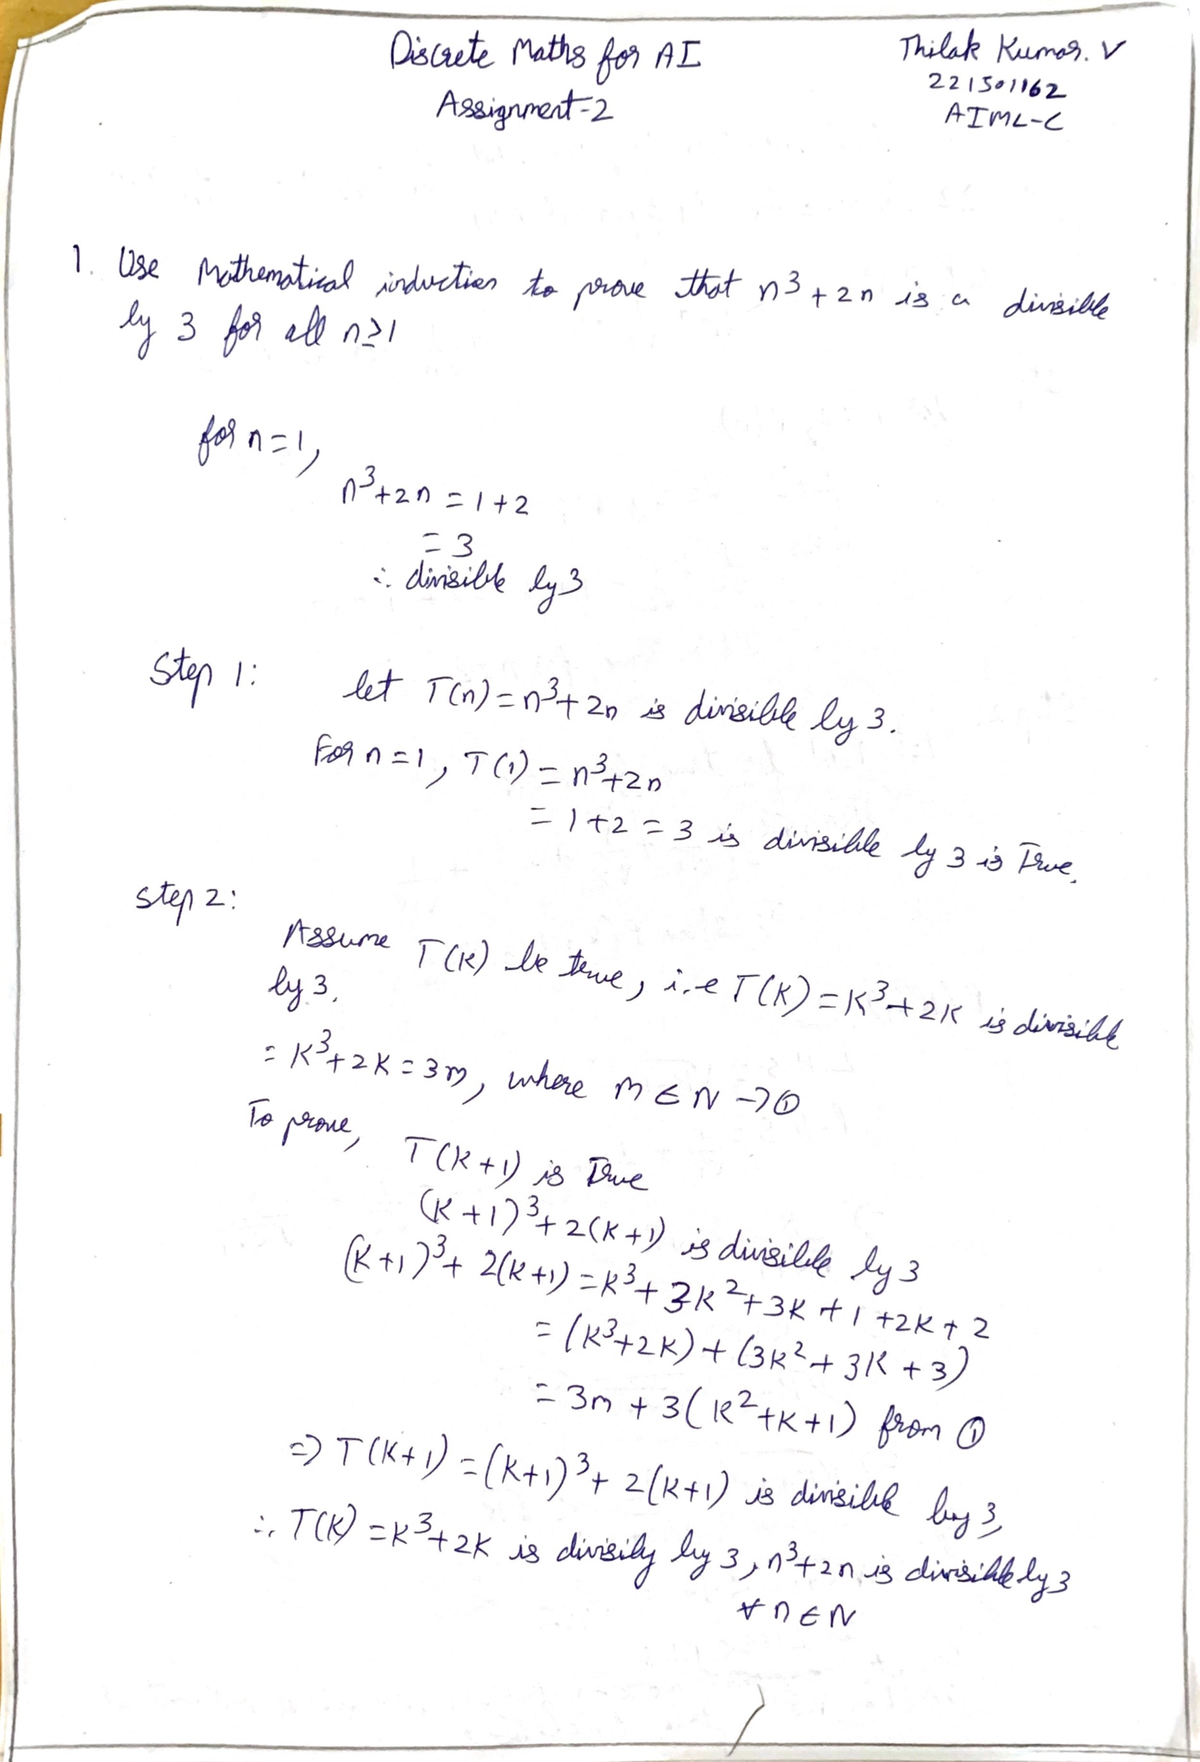 Discrete Maths for AI
Assignment-2
Thilak Kumar. V
221501162
AIML-C
1. Use Mathematical induction to prove that n³+2n is a divisible
by 3 for all n≥1
for n=1,
n³+2n = 1+2
= 3
∴ divisible by 3
Step 1: let T(n)=n³+2n is divisible by 3.
For n=1, T(1) = n³+2n
= 1+2 = 3 is divisible by 3 is True.
Step 2:
Assume T(K) be true, i.e T(K) = K³+2K is divisible
by 3.
= K³+2K = 3m, where m ∈ N → ①
To prove, T(K+1) is True
(K+1)³+2(K+1) is divisible by 3
(K+1)³+ 2(K+1) = K³+3K²+3K+1+2K+2
= (K³+2K)+(3K²+3K+3)
= 3m + 3(K²+K+1) from ①
=> T(K+1) = (K+1)³+ 2(K+1) is divisible by 3,
∴ T(K) = K³+2K is divisily by 3, n³+2n is divisible by 3
∀ n ∈ N